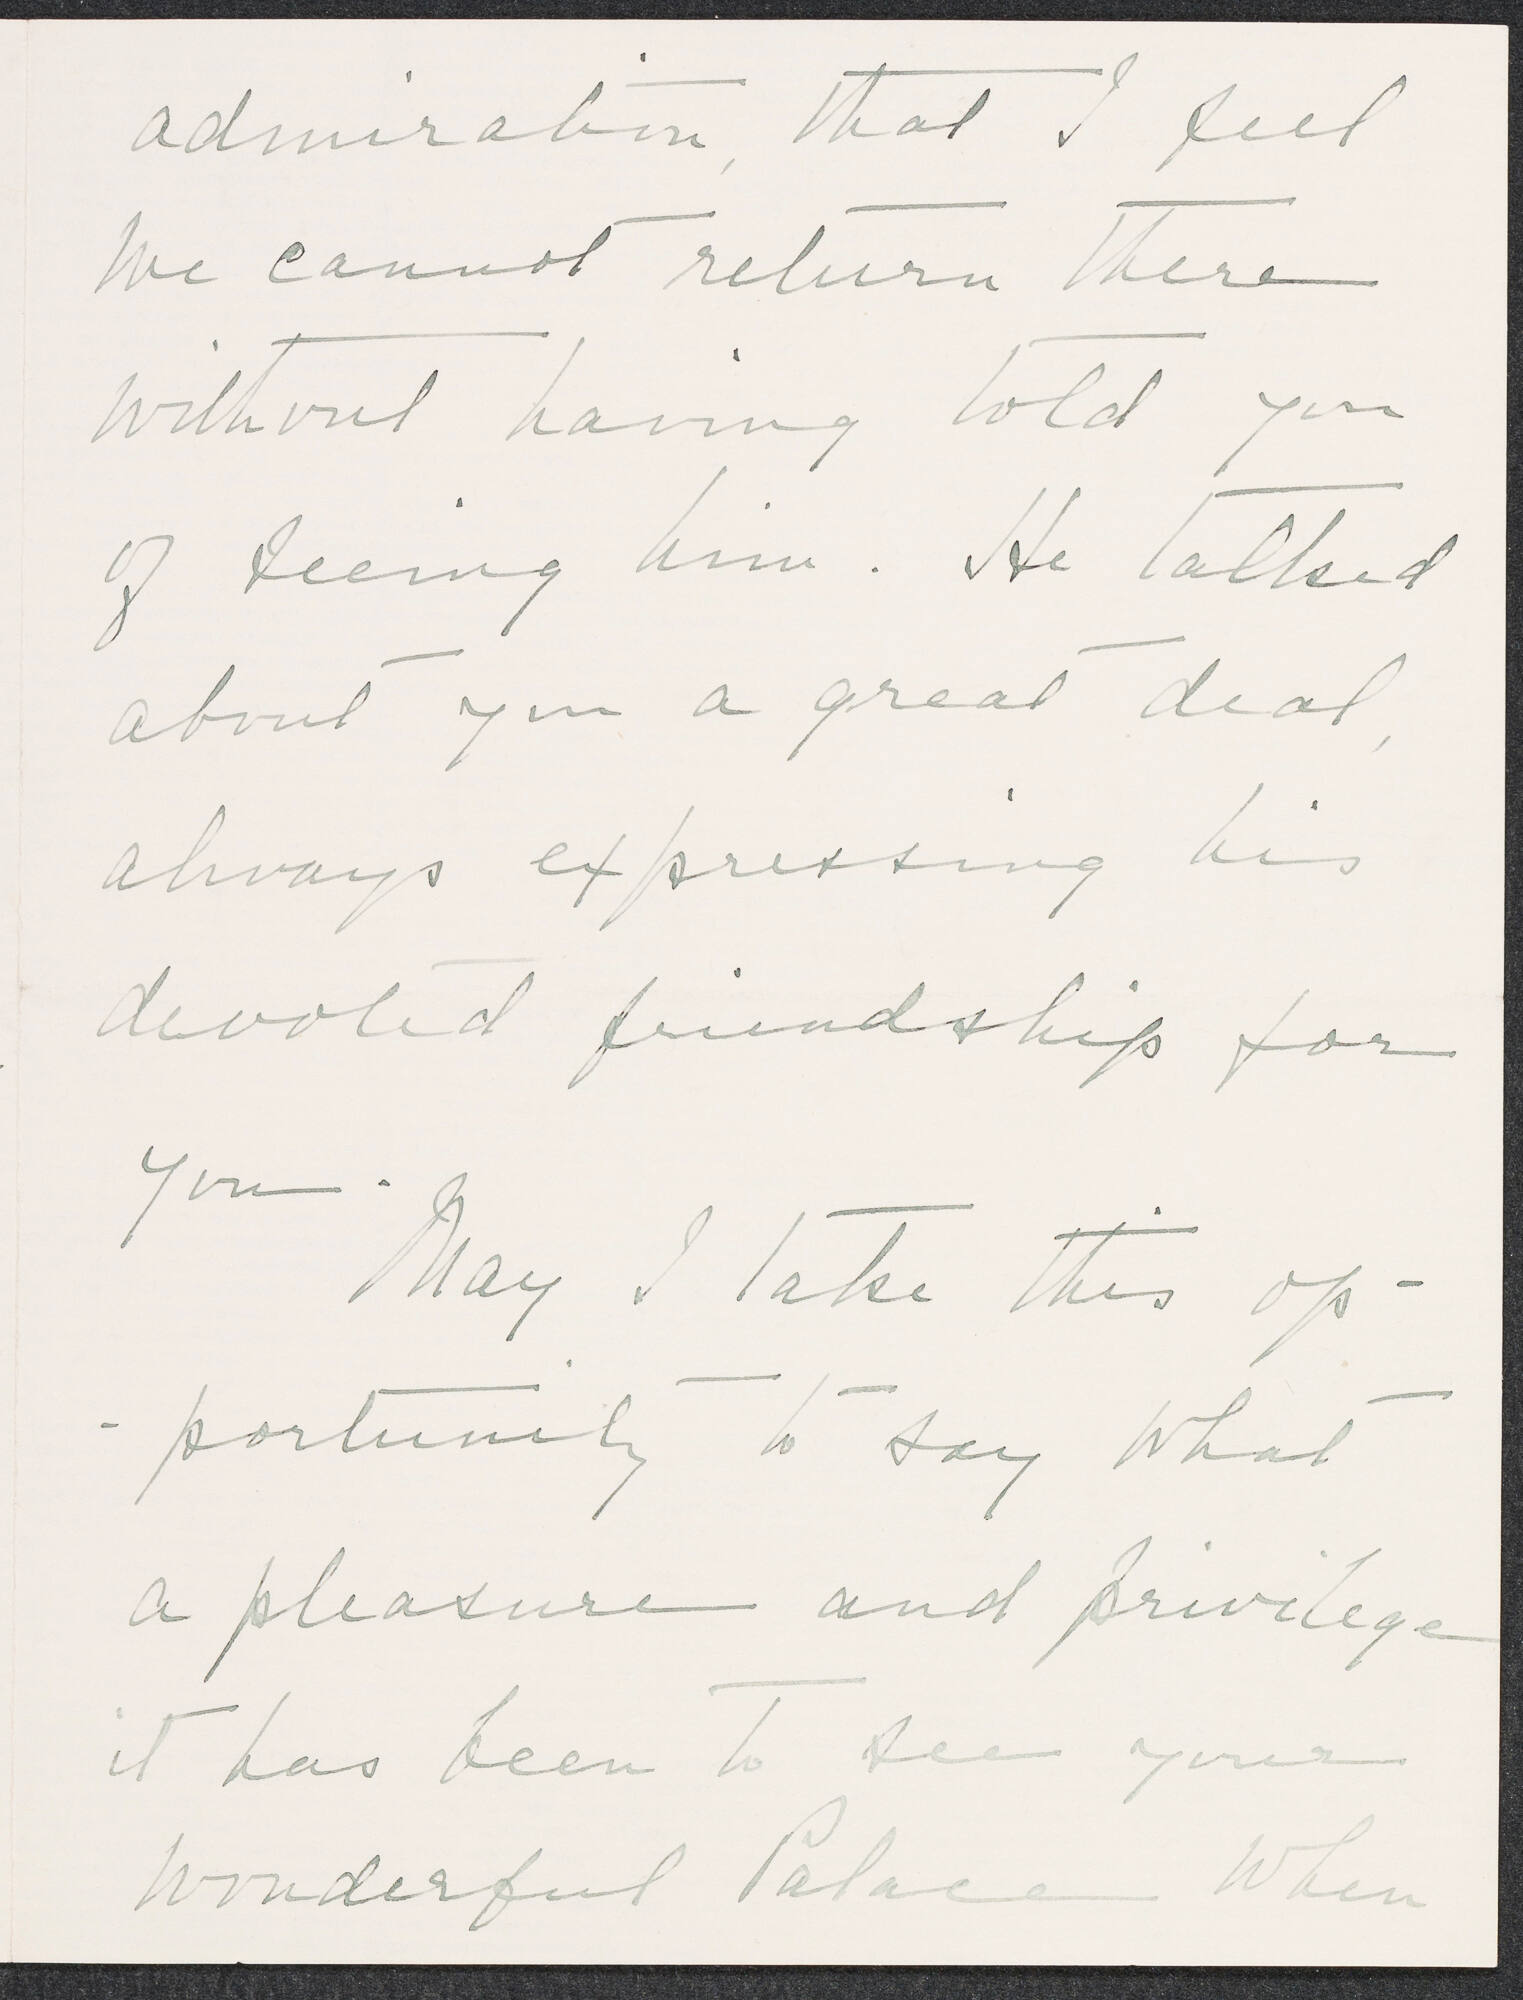 admiration, that I feel
we cannot return there
without having told you
of seeing him. He talked
about you a great deal,
always expressing his
devoted friendship for
you.
May I take this op-
-portunity to say what
a pleasure and privilege
it has been to see your
wonderful Palace when